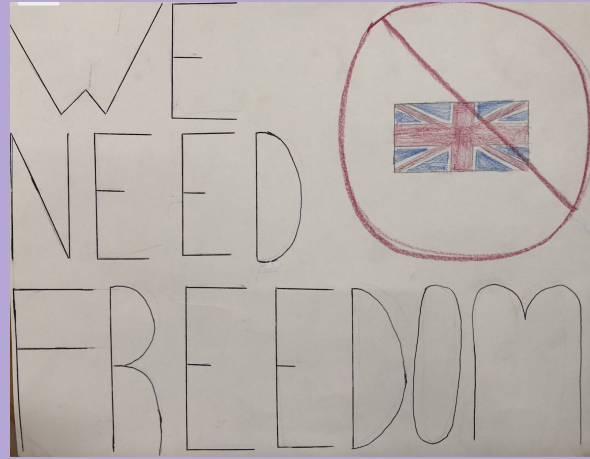 WE
NEED
FREEDOM